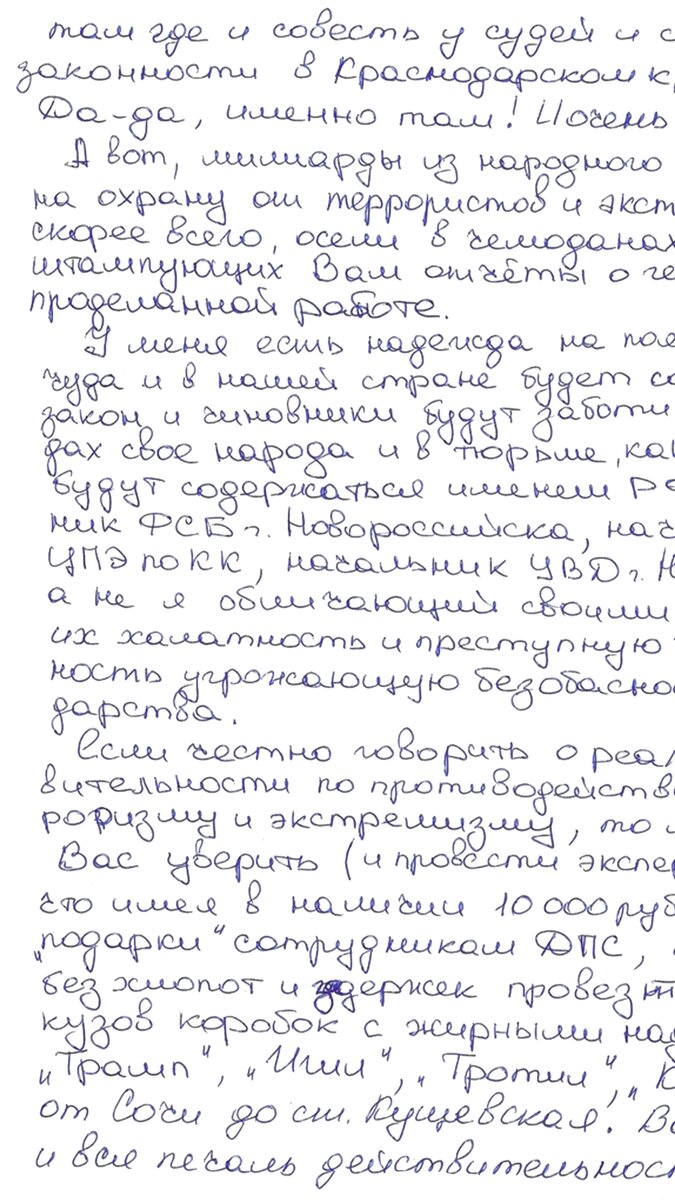 там где и совесть у судей и с
законности в Краснодарском к
Да-да, именно там! И очень
А вот, милиарды из народного
на охрану от террористов и экст
скорее всего, осели в чемоданах
штампующих Вам отчёты о ге
проделанной работе.
У меня есть надежда на поя
чуда и в нашей стране будет со
закон и чиновники будут заботи
дах свое народа и в тюрьме, ка
будут содержаться именем РФ
ник ФСБ г. Новороссийска, нач
ЦПЭ по КК, начальник УВД г. Н
а не я обличающий своими
их халатность и преступную
ность угрожающую безобасно
дарства.
Если честно говорить о реал
вительности по противодейств
роризму и экстремизму, то
Вас уверить (и провести экспер
что имея в наличии 10 000 руб
„подарки" сотрудникам ДПС,
без хлопот и здержек провезти
кузов коробок с жирными на
„Трамп", „Игил", „Тротил", „
от Сочи до ст. Кущевская. В
и вся печаль действительнос